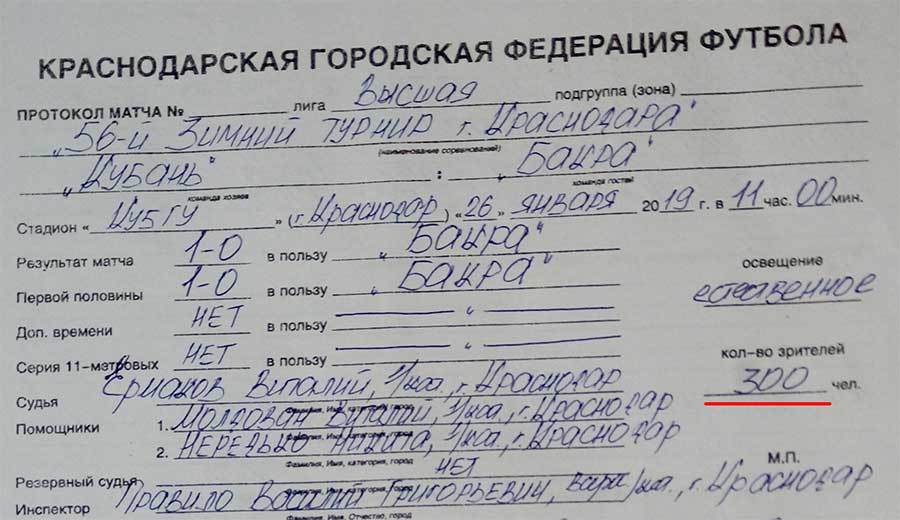 КРАСНОДАРСКАЯ ГОРОДСКАЯ ФЕДЕРАЦИЯ ФУТБОЛА
ПРОТОКОЛ МАТЧА № лига Высшая подгруппа (зона)
„56-й Зимний турнир г. Краснодара"
(наименование соревнований)
„Кубань" : „Бакра"
команда хозяев команда гостей
Стадион « КубГУ » (г. Краснодар) «26» января 2019 г. в 11 час. 00 мин.
Результат матча 1-0 в пользу „Бакра"
освещение
Первой половины 1-0 в пользу „Бакра"
естественное
Доп. времени НЕТ в пользу — „ —
Серия 11-метровых НЕТ в пользу — „ —
кол-во зрителей
Судья Ермаков Виталий, 1/кат, г. Краснодар
300 чел.
Фамилия, Имя, категория, город
Помощники 1. Молдован Виталий, 1/кат, г. Краснодар
Фамилия, Имя, категория, город
2. Нередько Никита, 1/кат, г. Краснодар
Фамилия, Имя, категория, город
М.П.
Резервный судья НЕТ
Инспектор Правило Василий Григорьевич, г. Краснодар
Фамилия, Имя, Отчество, город